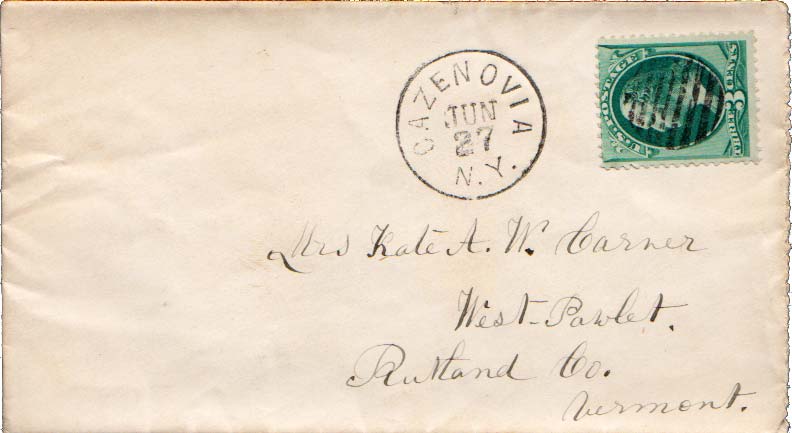 CAZENOVIA
JUN
27
N.Y.
U.S. POSTAGE
THREE 3 CENTS
Mrs Kate A. W. Carner
West-Pawlet.
Rutland Co.
Vermont.